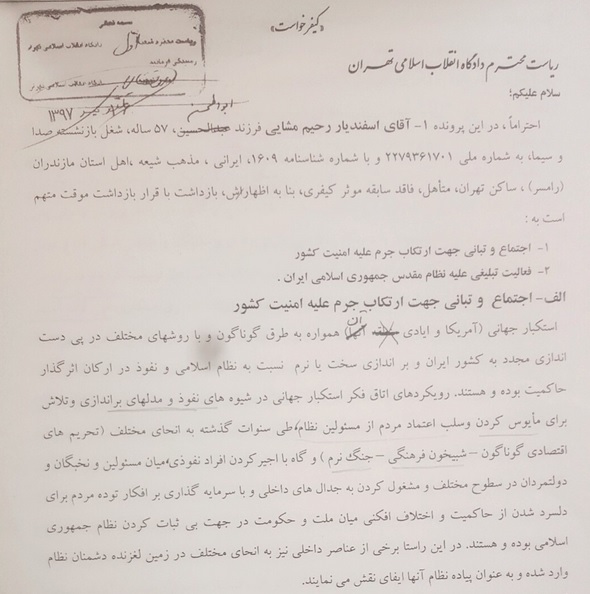 «کیفرخواست»
بسمه تعالی
ریاست محترم شعبه اول دادگاه انقلاب اسلامی تهران
ریاست محترم دادگاه انقلاب اسلامی تهران
۱۳۹۷
سلام علیکم؛
ابوالحسن
احتراماً ، در این پرونده ۱- آقای اسفندیار رحیم مشایی فرزند عبدالحسین، ۵۷ ساله، شغل بازنشسته صدا
و سیما، به شماره ملی ۲۲۷۹۳۶۱۷۰۱ و با شماره شناسنامه ۱۶۰۹، ایرانی ، مذهب شیعه ،اهل استان مازندران
(رامسر) ، ساکن تهران، متأهل، فاقد سابقه موثر کیفری، بنا به اظهارش، بازداشت با قرار بازداشت موقت متهم
است به :
۱- اجتماع و تبانی جهت ارتکاب جرم علیه امنیت کشور
۲- فعالیت تبلیغی علیه نظام مقدس جمهوری اسلامی ایران .
الف- اجتماع و تبانی جهت ارتکاب جرم علیه امنیت کشور
استکبار جهانی (آمریکا و ایادی آن) همواره به طرق گوناگون و با روشهای مختلف در پی دست
اندازی مجدد به کشور ایران و بر اندازی سخت یا نرم نسبت به نظام اسلامی و نفوذ در ارکان اثرگذار
حاکمیت بوده و هستند. رویکردهای اتاق فکر استکبار جهانی در شیوه های نفوذ و مدلهای براندازی وتلاش
برای مأیوس کردن وسلب اعتماد مردم از مسئولین نظام،طی سنوات گذشته به انحای مختلف (تحریم های
اقتصادی گوناگون – شبیخون فرهنگی – جنگ نرم ) و گاه با اجیر کردن افراد نفوذی،میان مسئولین و نخبگان و
دولتمردان در سطوح مختلف و مشغول کردن به جدال های داخلی و با سرمایه گذاری بر افکار توده مردم برای
دلسرد شدن از حاکمیت و اختلاف افکنی میان ملت و حکومت در جهت بی ثبات کردن نظام جمهوری
اسلامی بوده و هستند. در این راستا برخی از عناصر داخلی نیز به انحای مختلف در زمین لغزنده دشمنان نظام
وارد شده و به عنوان پیاده نظام آنها ایفای نقش می نمایند.